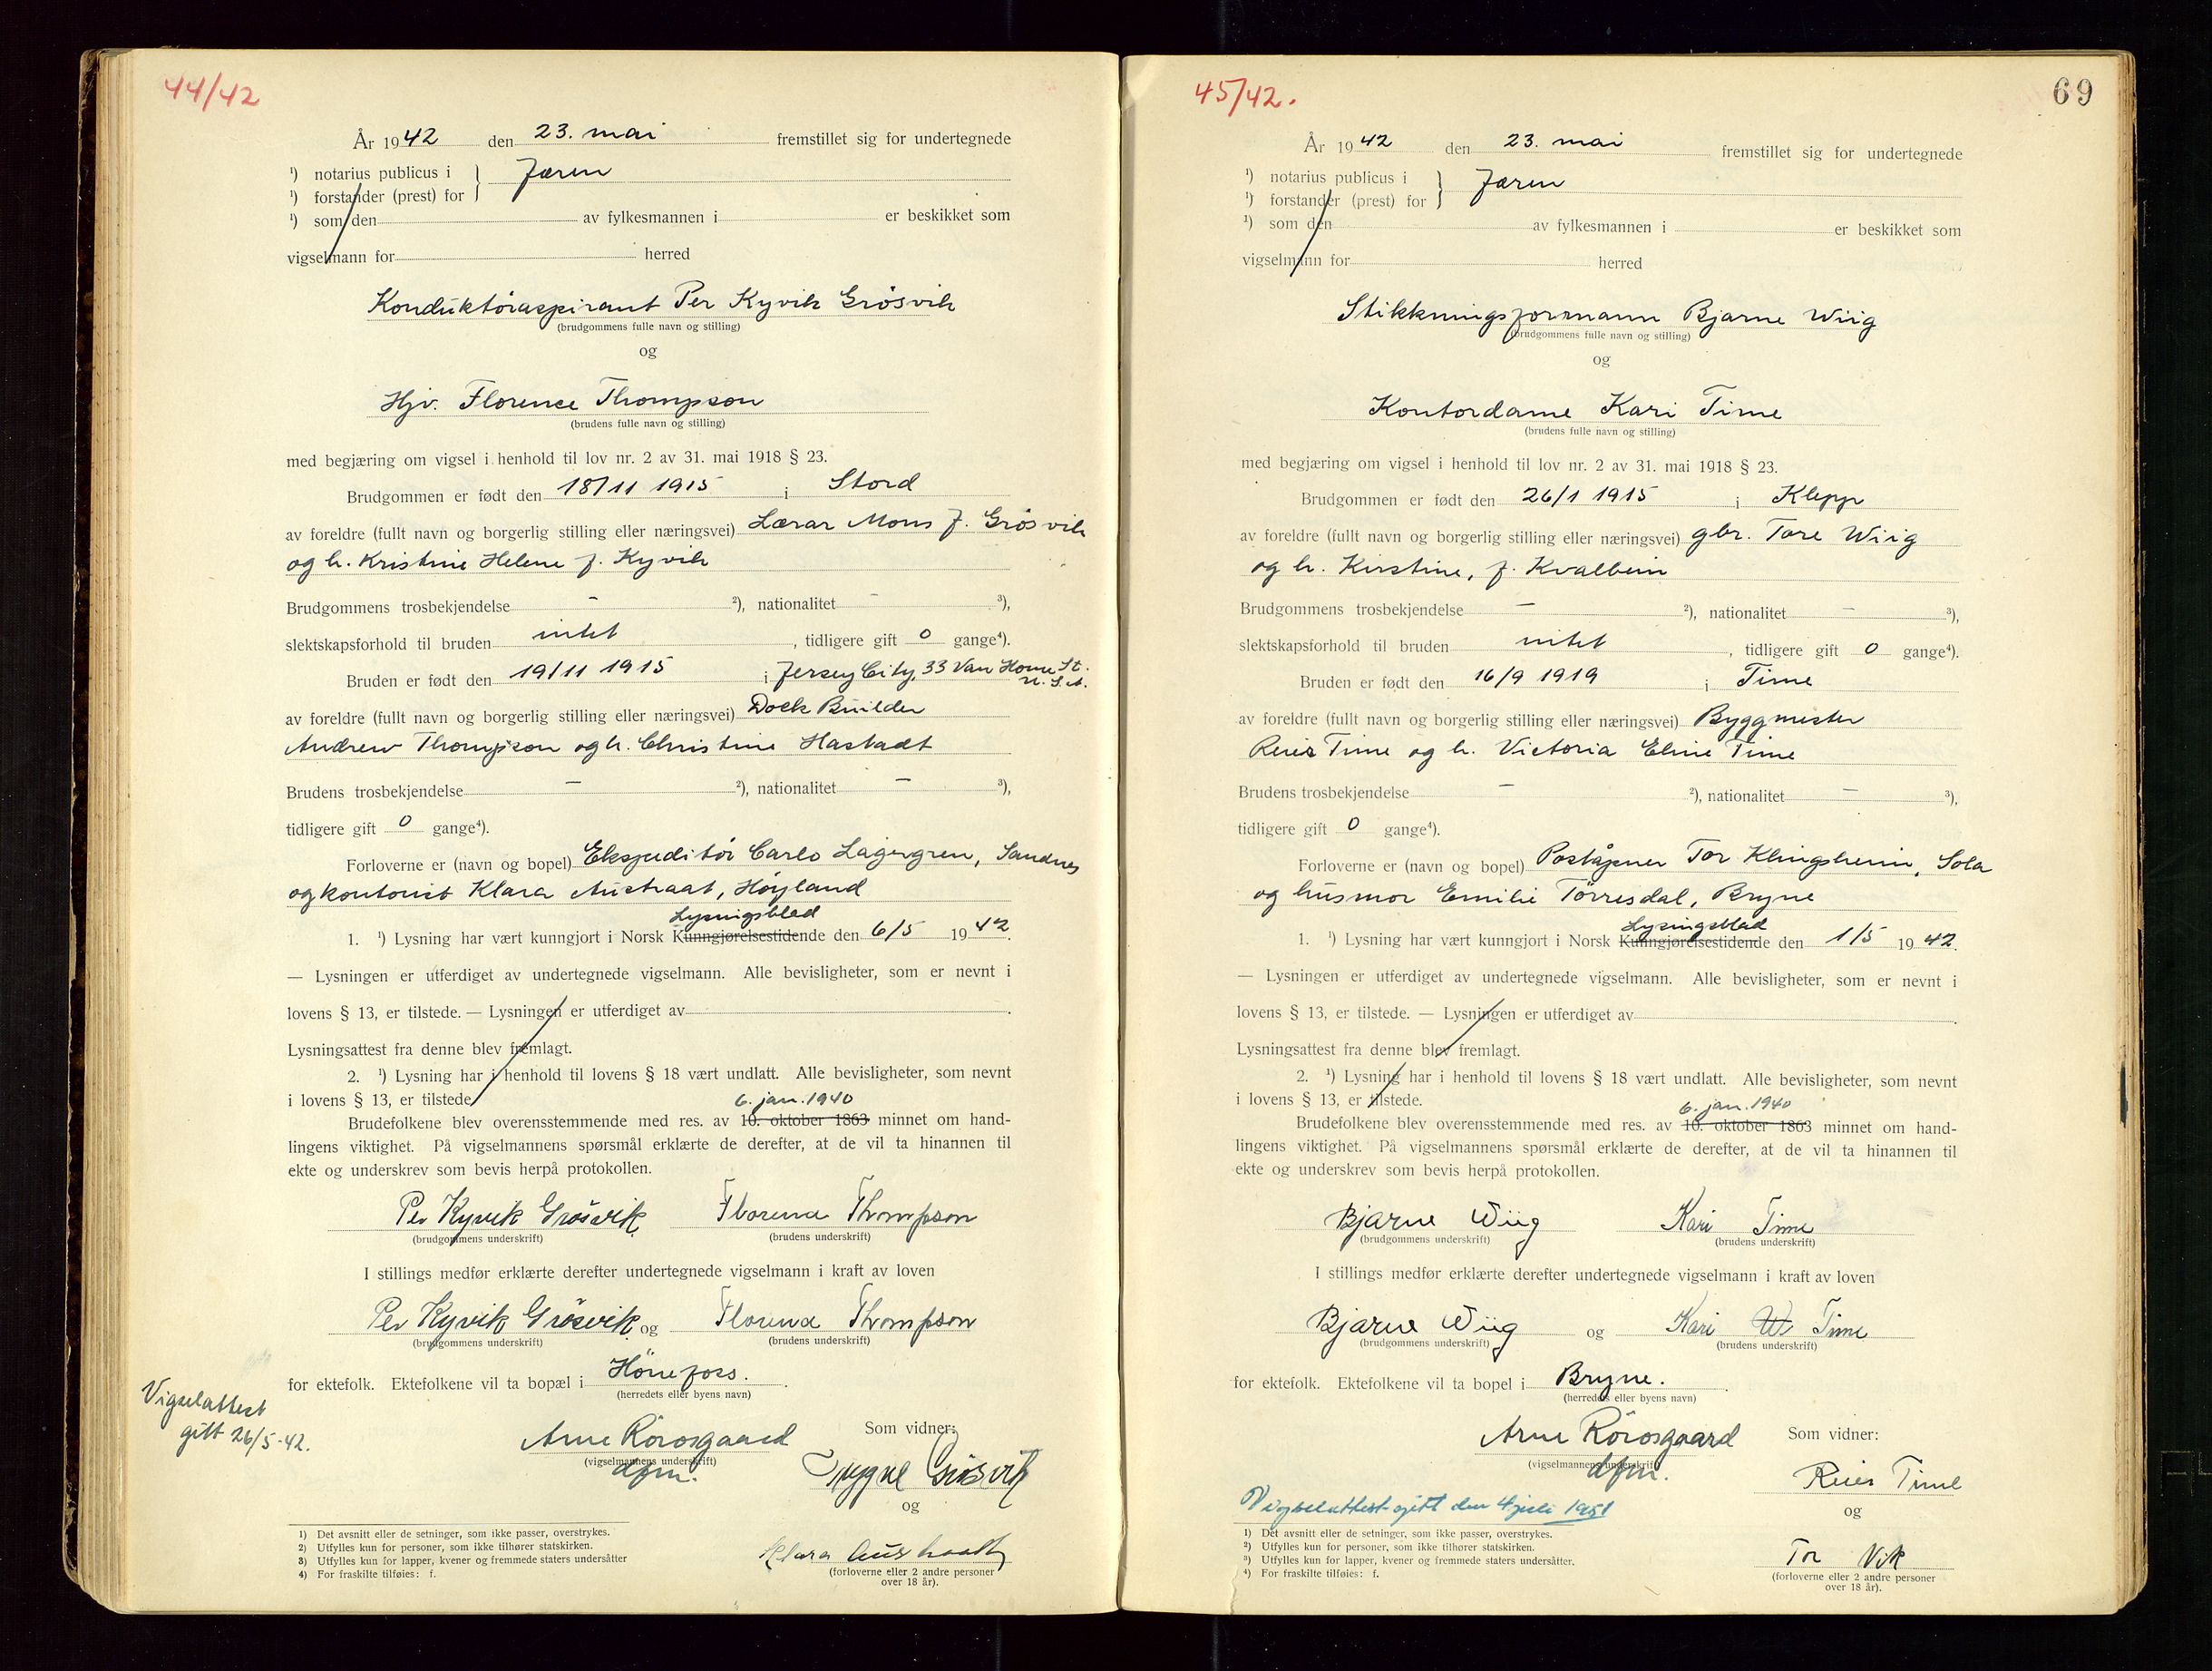 44/42
År 1942 den 23. mai fremstillet sig for undertegnede
¹) notarius publicus i } Jæren
¹) forstander (prest) for
¹) som den av fylkesmannen i er beskikket som
vigselmann for herred
Konduktøraspirant Per Kyvik Grøsvik
(brudgommens fulle navn og stilling)
og
Hjv. Florence Thompson
(brudens fulle navn og stilling)
med begjæring om vigsel i henhold til lov nr. 2 av 31. mai 1918 § 23.
Brudgommen er født den 18/11 1915 i Stord
av foreldre (fullt navn og borgerlig stilling eller næringsvei) Lærar Mons J. Grøsvik
og h. Kristine Helene f. Kyvik
Brudgommens trosbekjendelse – ²), nationalitet – ³),
slektskapsforhold til bruden intet, tidligere gift 0 gange⁴).
Bruden er født den 19/11 1915 i Jersey City, 33 Van Horne St.
U.S.A.
av foreldre (fullt navn og borgerlig stilling eller næringsvei) Dock Builder
Andrew Thompson og h. Christine Hastadt
Brudens trosbekjendelse – ²), nationalitet – ³),
tidligere gift 0 gange⁴).
Forloverne er (navn og bopel) Ekspeditør Carlo Lagergren, Sandnes
og kontorist Klara Austraat, Høyland
Lysningsblad
1. ¹) Lysning har vært kunngjort i Norsk Kunngjørelsestidende den 6/5 1942.
— Lysningen er utferdiget av undertegnede vigselmann. Alle bevisligheter, som er nevnt i
lovens § 13, er tilstede. — Lysningen er utferdiget av .
Lysningsattest fra denne blev fremlagt.
2. ¹) Lysning har i henhold til lovens § 18 vært undlatt. Alle bevisligheter, som nevnt
i lovens § 13, er tilstede.
6. jan. 1940
Brudefolkene blev overensstemmende med res. av 10. oktober 1863 minnet om hand-
lingens viktighet. På vigselmannens spørsmål erklærte de derefter, at de vil ta hinannen til
ekte og underskrev som bevis herpå protokollen.
Per Kyvik Grøsvik Florence Thompson
(brudgommens underskrift) (brudens underskrift)
I stillings medfør erklærte derefter undertegnede vigselmann i kraft av loven
Per Kyvik Grøsvik og Florence Thompson
(brudgommens underskrift) (brudens underskrift)
for ektefolk. Ektefolkene vil ta bopæl i Hønefoss.
(herredets eller byens navn)
Vigselattest
gitt 26/5-42.
Arne Rørosgaard
(vigselmannens underskrift)
dfm.
Som vidner:
Trygve Grøsvik
og
Klara Austraatt
(forloverne eller 2 andre personer
over 18 år).
1) Det avsnitt eller de setninger, som ikke passer, overstrykes.
2) Utfylles kun for personer, som ikke tilhører statskirken.
3) Utfylles kun for lapper, kvener og fremmede staters undersåtter
4) For fraskilte tilføies: f.
45/42.
69
År 1942 den 23. mai fremstillet sig for undertegnede
¹) notarius publicus i } Jæren
¹) forstander (prest) for
¹) som den av fylkesmannen i er beskikket som
vigselmann for herred
Stikkningsformann Bjarne Wiig
(brudgommens fulle navn og stilling)
og
Kontordame Kari Time
(brudens fulle navn og stilling)
med begjæring om vigsel i henhold til lov nr. 2 av 31. mai 1918 § 23.
Brudgommen er født den 26/1 1915 i Klepp
av foreldre (fullt navn og borgerlig stilling eller næringsvei) gbr. Tore Wiig
og h. Kirstine, f. Kvalbein
Brudgommens trosbekjendelse – ²), nationalitet – ³),
slektskapsforhold til bruden intet, tidligere gift 0 gange⁴).
Bruden er født den 16/9 1919 i Time
av foreldre (fullt navn og borgerlig stilling eller næringsvei) Byggmester
Reier Time og h. Victoria Eline Time
Brudens trosbekjendelse – ²), nationalitet – ³),
tidligere gift 0 gange⁴).
Forloverne er (navn og bopel) Poståpner Tor Klingsheim, Sola
og husmor Emilie Tørresdal, Bryne
Lysingsblad
1. ¹) Lysning har vært kunngjort i Norsk Kunngjørelsestidende den 1/5 1942.
— Lysningen er utferdiget av undertegnede vigselmann. Alle bevisligheter, som er nevnt i
lovens § 13, er tilstede. — Lysningen er utferdiget av .
Lysningsattest fra denne blev fremlagt.
2. ¹) Lysning har i henhold til lovens § 18 vært undlatt. Alle bevisligheter, som nevnt
i lovens § 13, er tilstede.
6. jan. 1940
Brudefolkene blev overensstemmende med res. av 10. oktober 1863 minnet om hand-
lingens viktighet. På vigselmannens spørsmål erklærte de derefter, at de vil ta hinannen til
ekte og underskrev som bevis herpå protokollen.
Bjarne Wiig Kari Time
(brudgommens underskrift) (brudens underskrift)
I stillings medfør erklærte derefter undertegnede vigselmann i kraft av loven
Bjarne Wiig og Kari W Time
(brudgommens underskrift) (brudens underskrift)
for ektefolk. Ektefolkene vil ta bopel i Bryne.
(herredets eller byens navn)
Arne Rørosgaard
(vigselmannens underskrift)
dfm.
Som vidner:
Reier Time
og
Tor Vik
(forloverne eller 2 andre personer
over 18 år).
Vigselattest gitt den 4 juli 1951
1) Det avsnitt eller de setninger, som ikke passer, overstrykes.
²) Utfylles kun for personer, som ikke tilhører statskirken.
³) Utfylles kun for lapper, kvener og fremmede staters undersåtter.
⁴) For fraskilte tilføies: f.